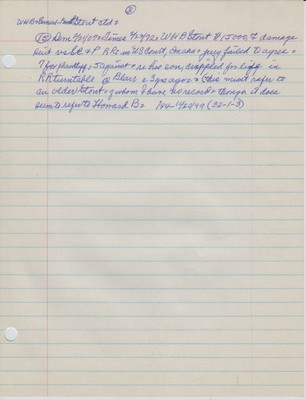 ②
WHB= Stout ctd=
(15) Dem 4/24/72= Times 4/25/72= WHB Stout $15000.00 damage
suit vs UC&P RRs in US Court, Omaha= jury failed to agree=
7 for plaintiff, 5 against= re his son, crippled for life in
RR turntable @ Blair = 3 yrs ago= this must refer to
an older Stout= of whom I have no record= though it does
seem to refer to Howard B=